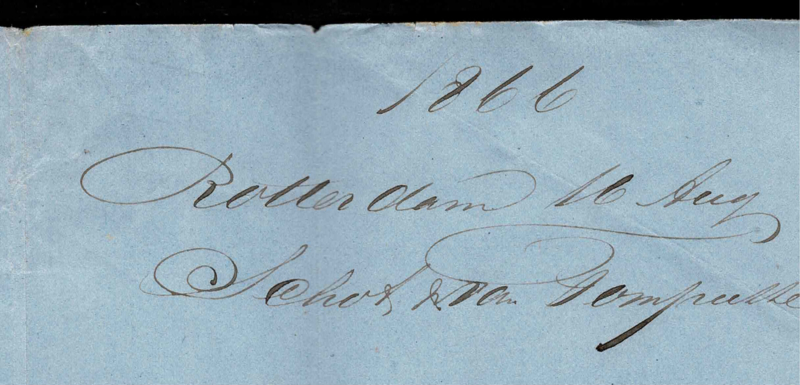 1866
Rotterdam 16 Aug
Schot & van